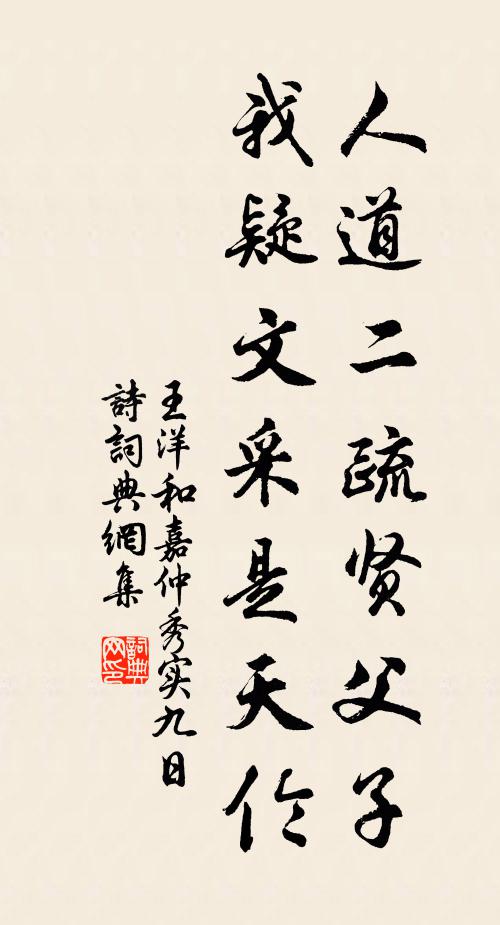 人道二疏贤父子
我疑文采是天伶
王洋和嘉仲秀实九日
詩詞典網集
詞典网印